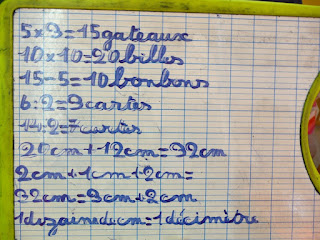 5×3=15gateaux
10×10=20billes
15-5=10bonbons
6:2=3cartes
14:2=7cartes
20cm+12cm=32cm
2cm+1cm+2cm=
32cm=3cm+2cm
1dizainedecm=1décimètre